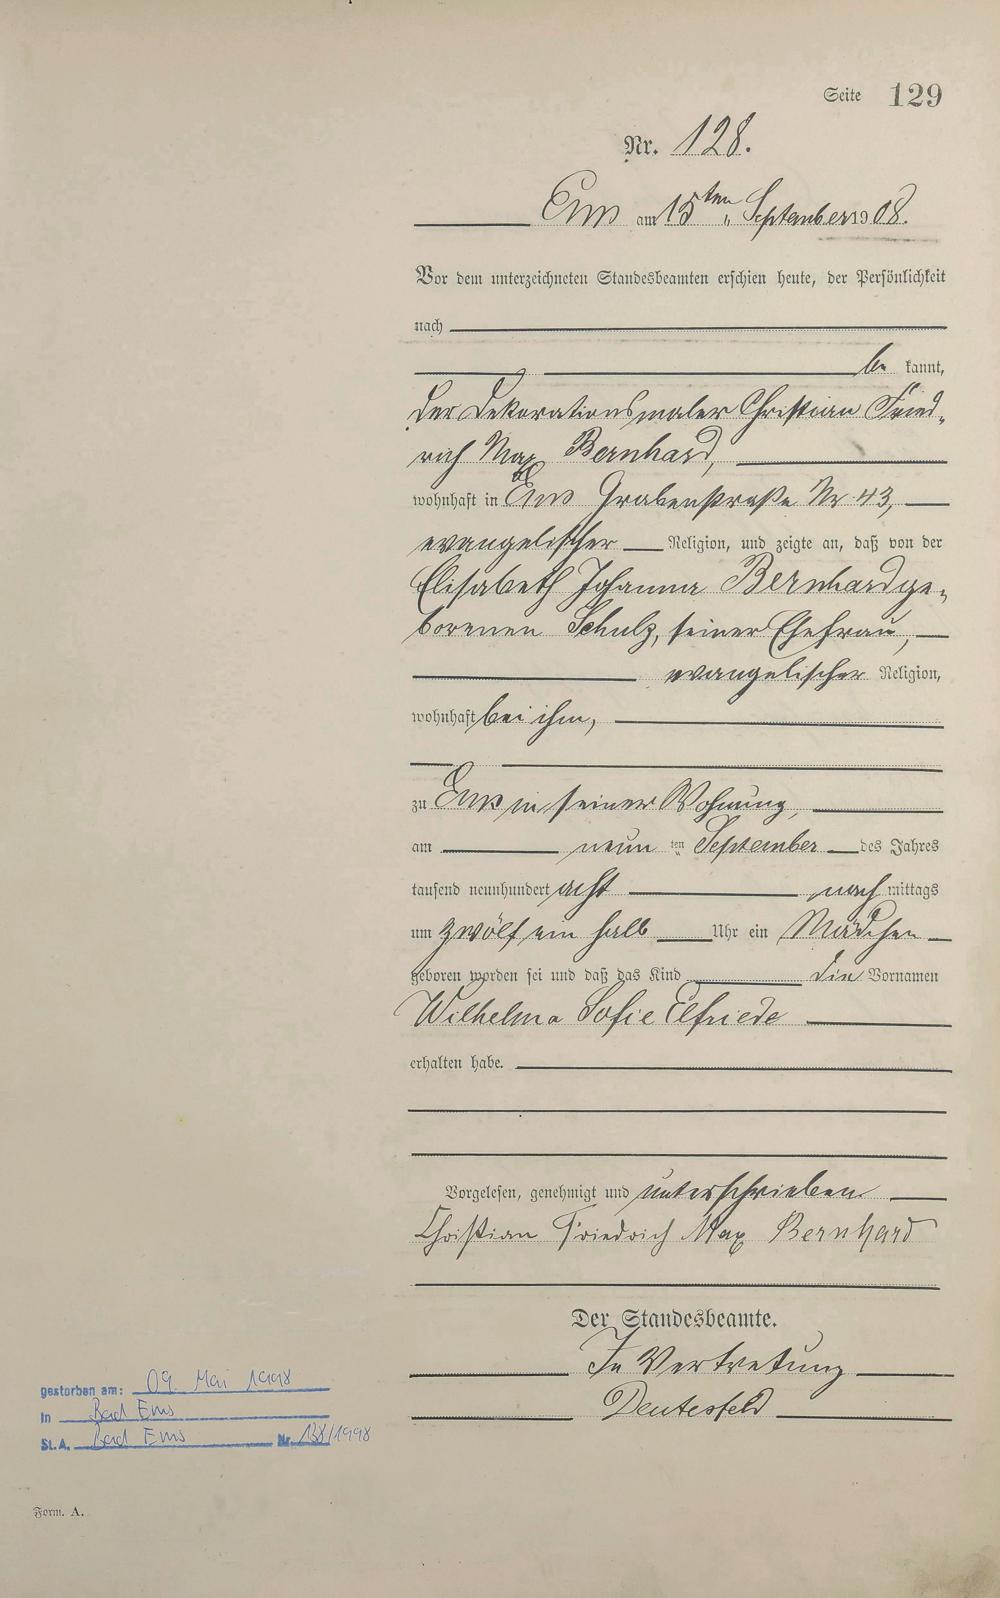 Seite 129
Nr. 128.
Ems am 15ten September 1908.
Vor dem unterzeichneten Standesbeamten erschien heute, der Persönlichkeit
nach
be kannt,
der Dekorationsmaler Christian Fried-
rich Max Bernhard,
wohnhaft in Ems Grabenstraße Nr 43,
evangelischer Religion, und zeigte an, daß von der
Elisabeth Johanna Bernhard ge-
borenen Schulz, seiner Ehefrau,
evangelischer Religion,
wohnhaft bei ihm,
zu Ems in seiner Wohnung,
am neun ten September des Jahres
tausend neunhundert acht nach mittags
um zwölf ein halb Uhr ein Mädchen
geboren worden sei und daß das Kind die Vornamen
Wilhelma Sofie Elfriede
erhalten habe.
Vorgelesen, genehmigt und unterschrieben
Christian Friedrich Max Bernhard
Der Standesbeamte.
In Vertretung
Deutesfeld
gestorben am: 09. Mai 1998
In Bad Ems
St.A. Bad Ems Nr. 138/1998
Form. A.